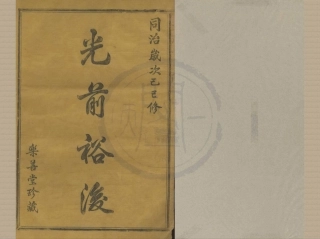 同治歲次己巳修
光前裕後
樂善堂珍藏